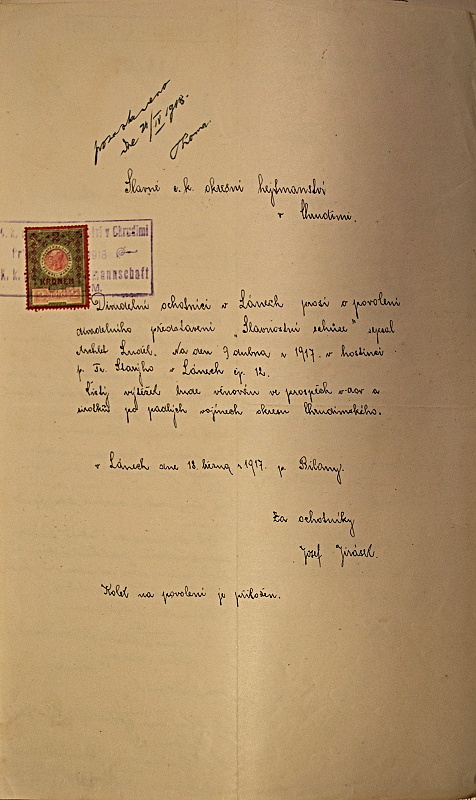 pozastaveno
dne 20/IV 1918.
Thoma
Slavné c. k. okresní hejtmanství
v Chrudimi.
tví v Chrudimi
1918
mannschaft
KRONEN
Divadelní ochotníci v Lánech prosí o povolení
divadelního představení "Slavnostní schůze" sepsal
Archlet Luděk. Na den 9 dubna r 1917. v hostinci
p. Fr. Starýho v Lánech čp. 12.
Čistý výtěžek bude věnován ve prospěch vdov a
sirotků po padlých vojínech okresu Chrudimského.
v Lánech dne 18. března r 1917. p. Bílany.
Za ochotníky
Josef Jirásek.
Kolek na povolení je přiložen.